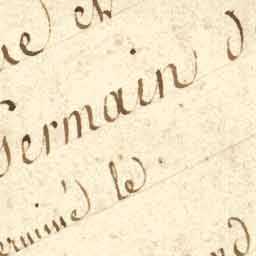 ue et
Germain d
erminé le
nd